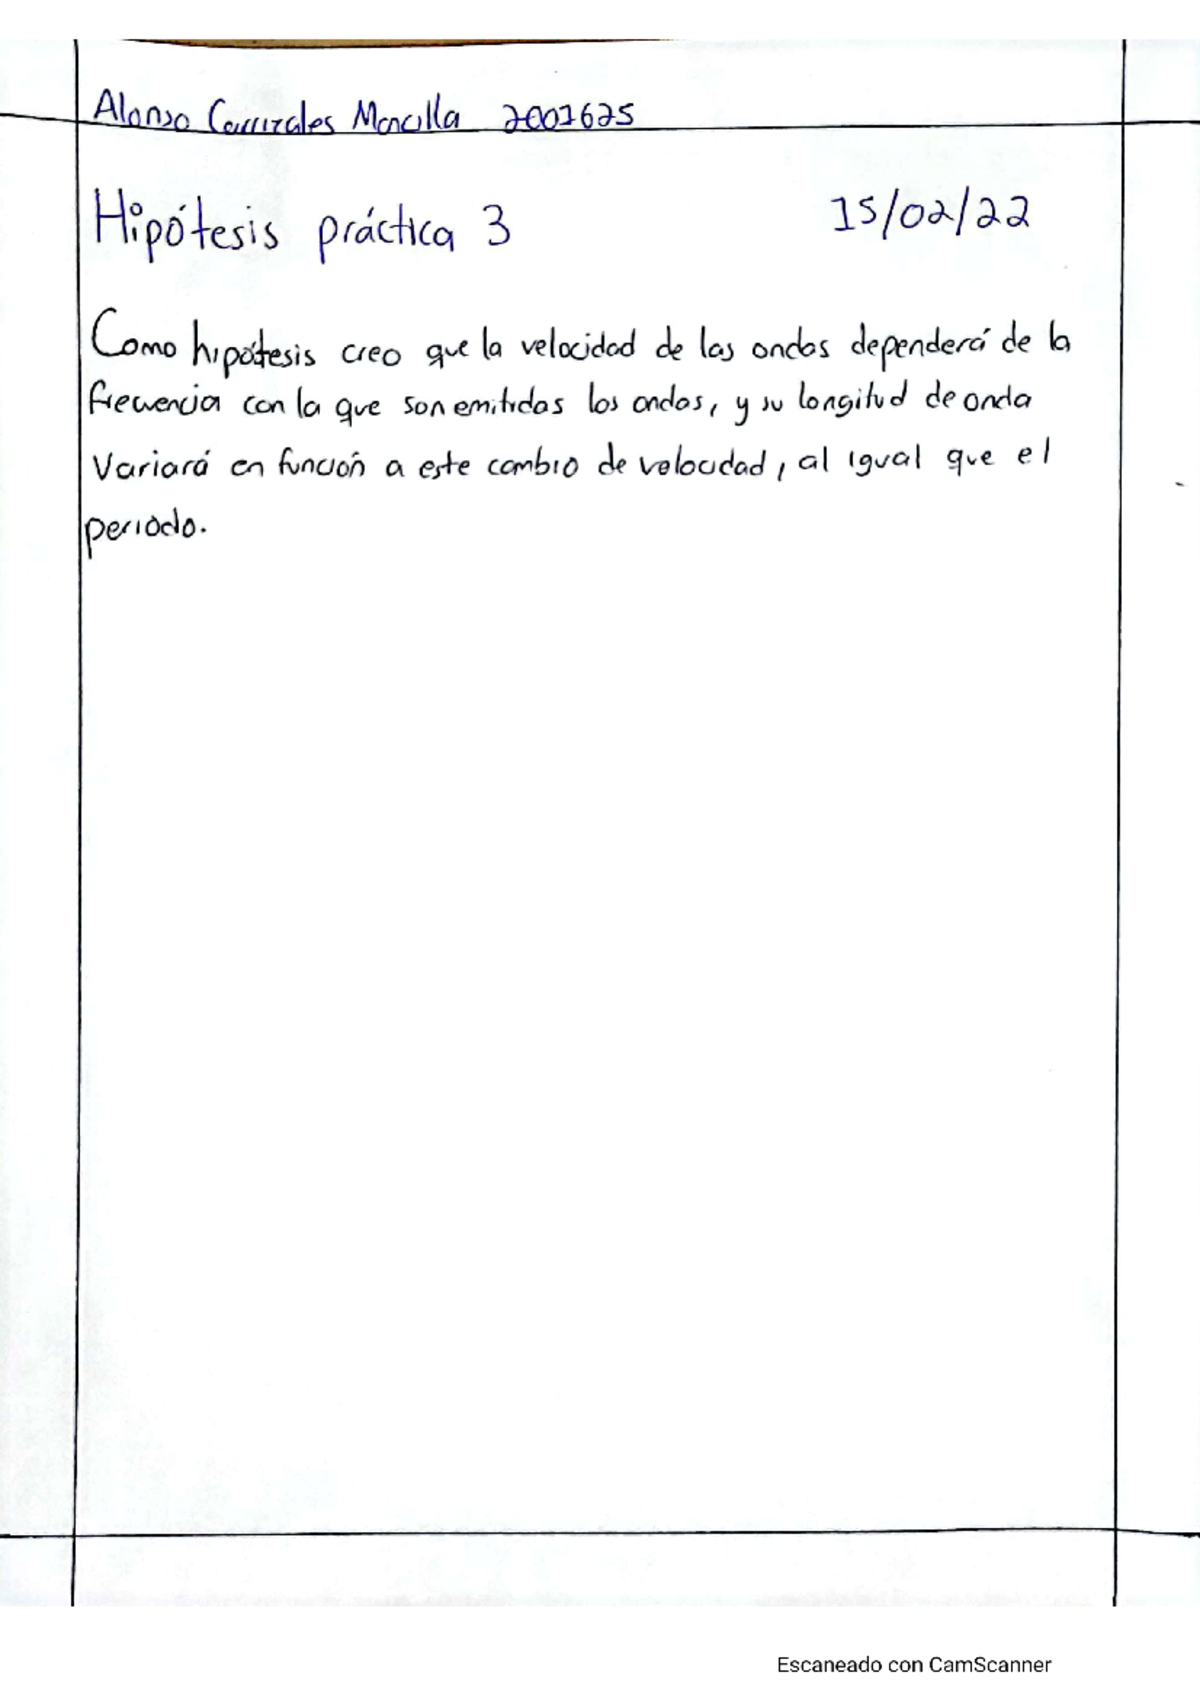 Alonso Carrizales Mancilla 2001625
Hipótesis práctica 3 15/02/22
Como hipótesis creo que la velocidad de las ondas dependerá de la
frecuencia con la que son emitidas las ondas, y su longitud de onda
variará en función a este cambio de velocidad, al igual que el
periodo.
Escaneado con CamScanner